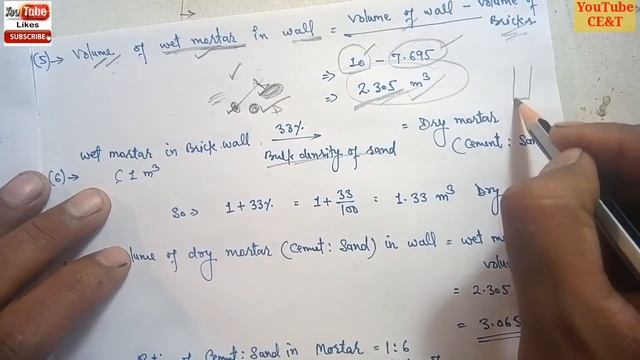 YouTube
Likes
SUBSCRIBE
YouTube
CE&T
(5)→ Volume of wet mortar in wall = Volume of wall - Volume of
Bricks
⇒ 10 - 7.695
⇒ 2.305 m³
wet mortar in Brick wall 33% = Dry mortar
Bulk density of sand (Cement : San
(6)→ ( 1 m³
So→ 1 + 33% = 1 + 33/100 = 1.33 m³ Dry
lume of dry mortar (Cement : Sand) in wall = wet m
volu
= 2.305
= 3.065
of Cement : Sand in Mortar = 1 : 6